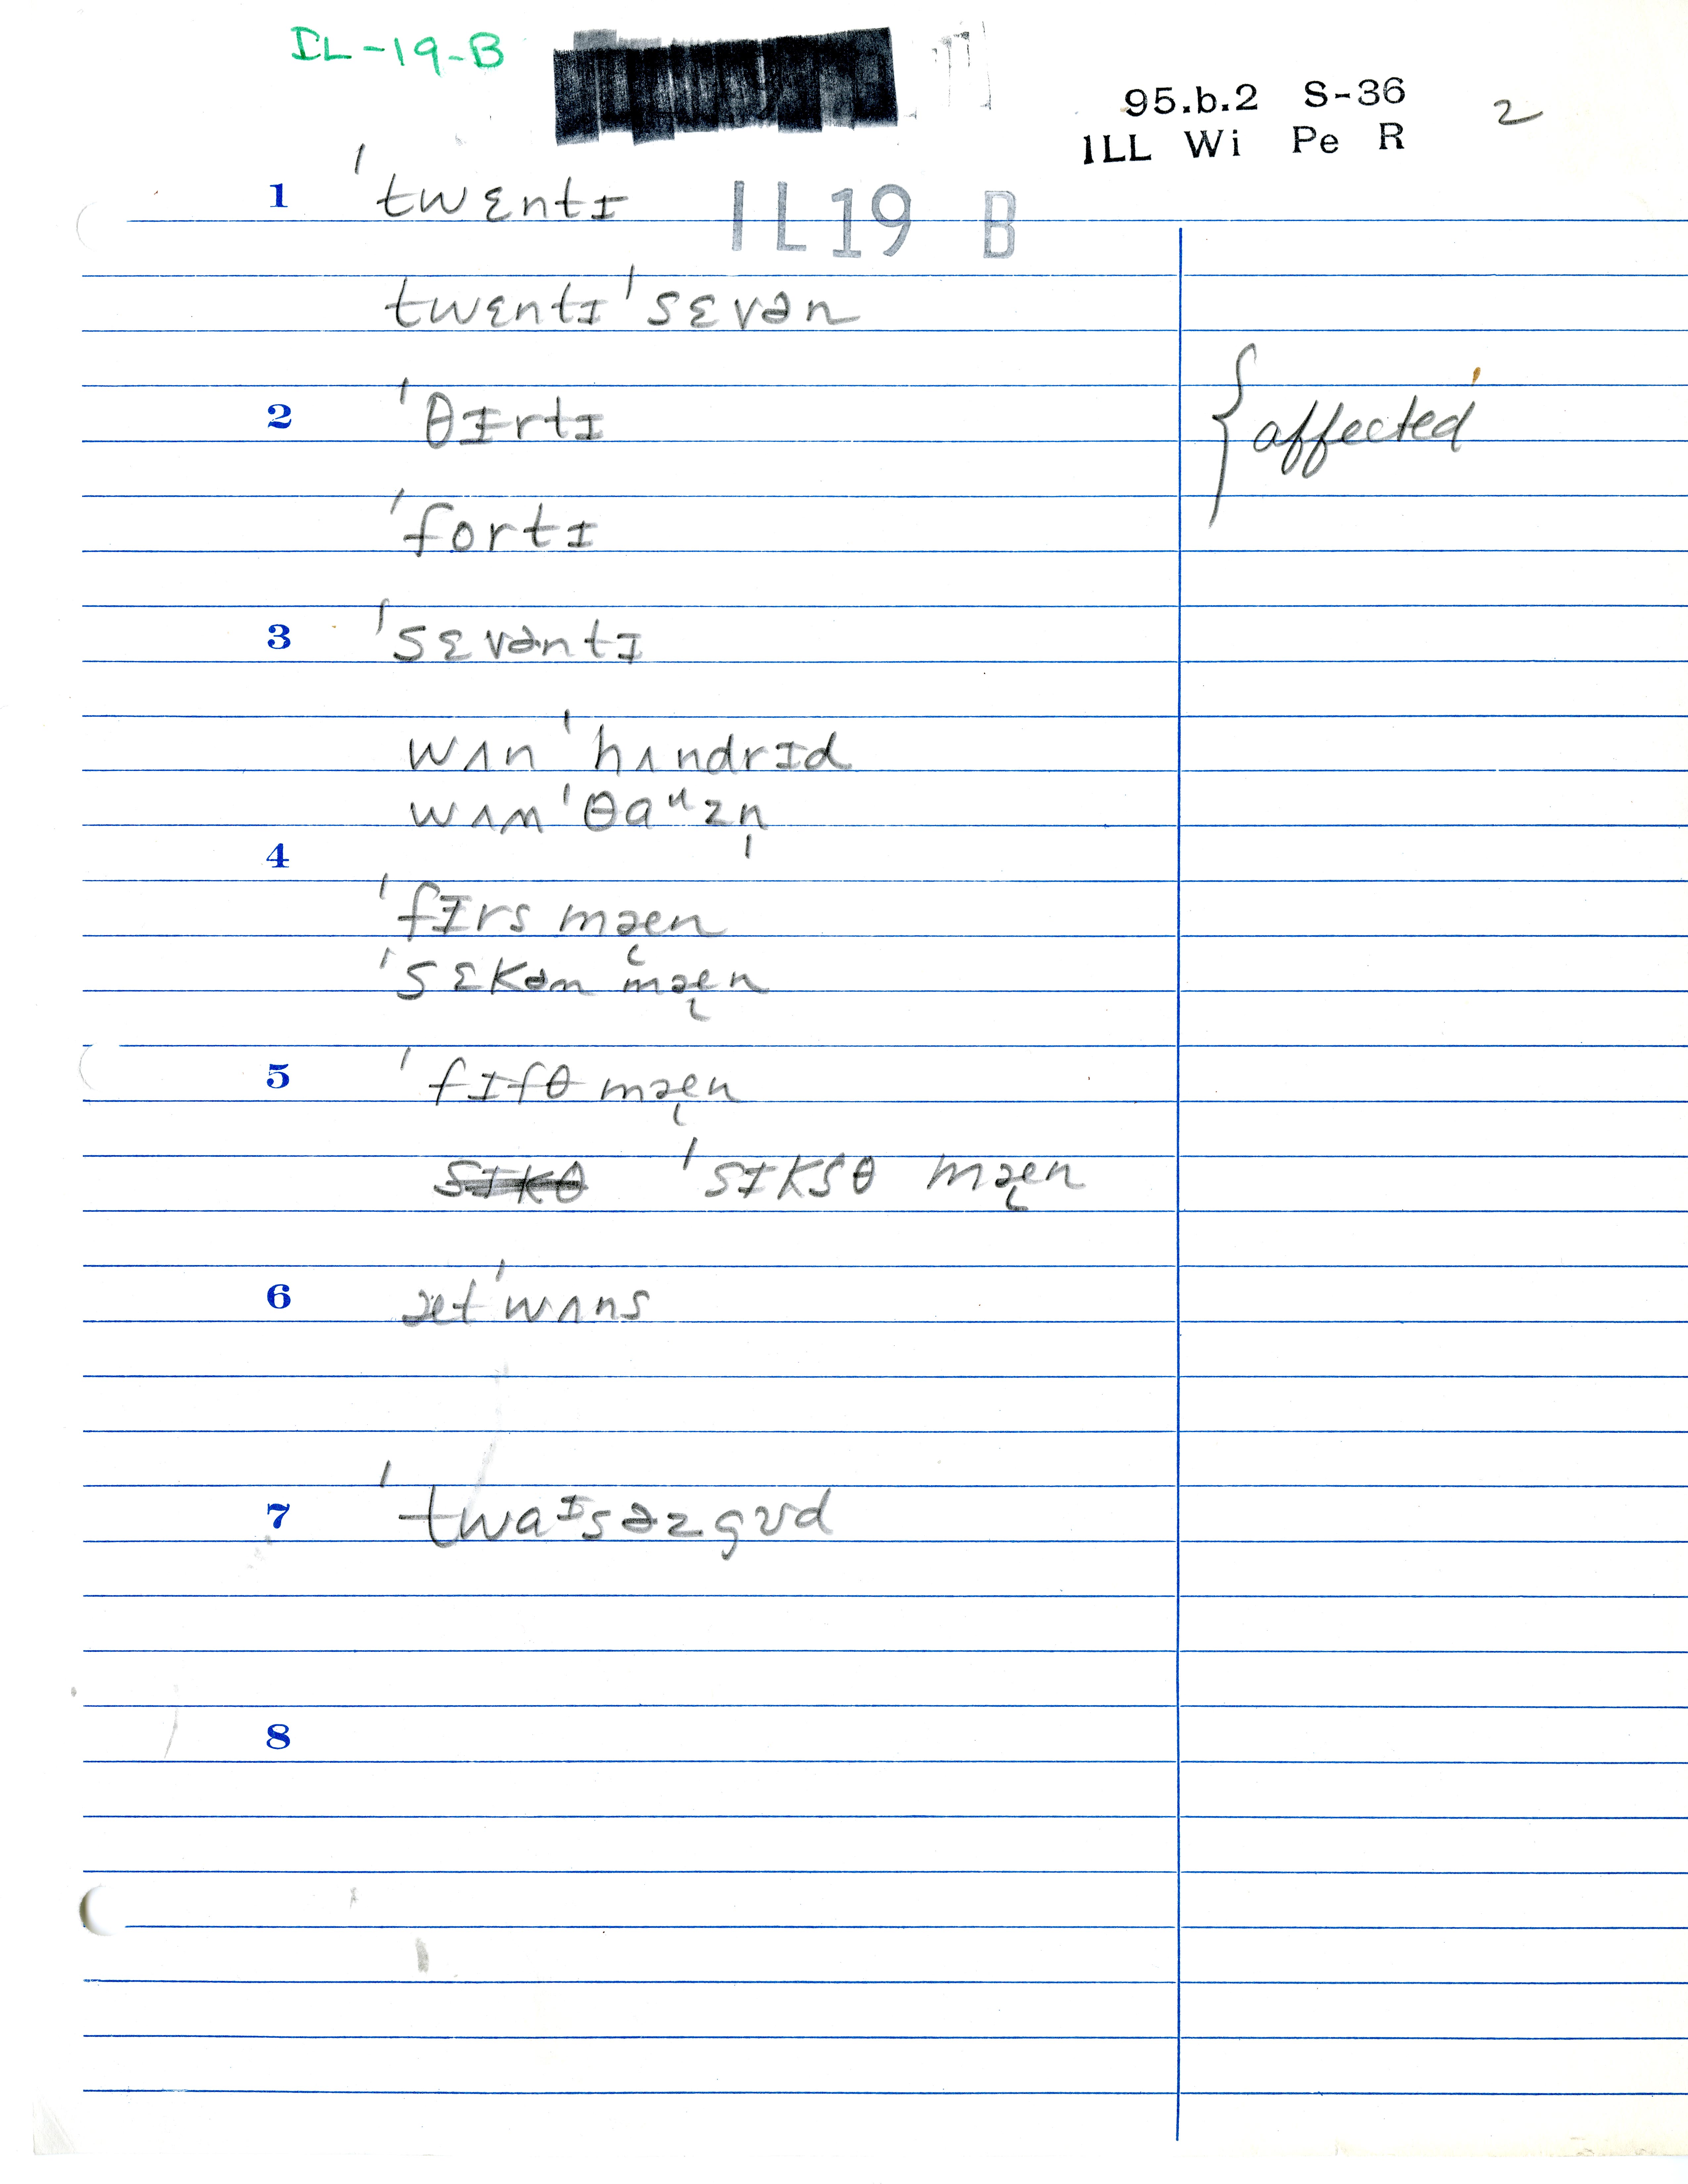 IL-19-B
95.b.2 S-36 2
ILL Wi Pe R
1 ˈtwɛntɪ IL19 B
twɛntɪ ˈsɛvən
2 ˈθɪrtɪ { affected
ˈfortɪ
3 ˈsɛvəntɪ
wʌn ˈhʌndrɪd
wʌn ˈθaᵘzn̩
4
ˈfɪrs mæn
ˈsɛkən mæ̨n
5 ˈfɪfθ mæ̨n
ˈsɪksθ mæ̨n
6 æt ˈwʌns
7 ˈtwaᶦsəzgʊd
8